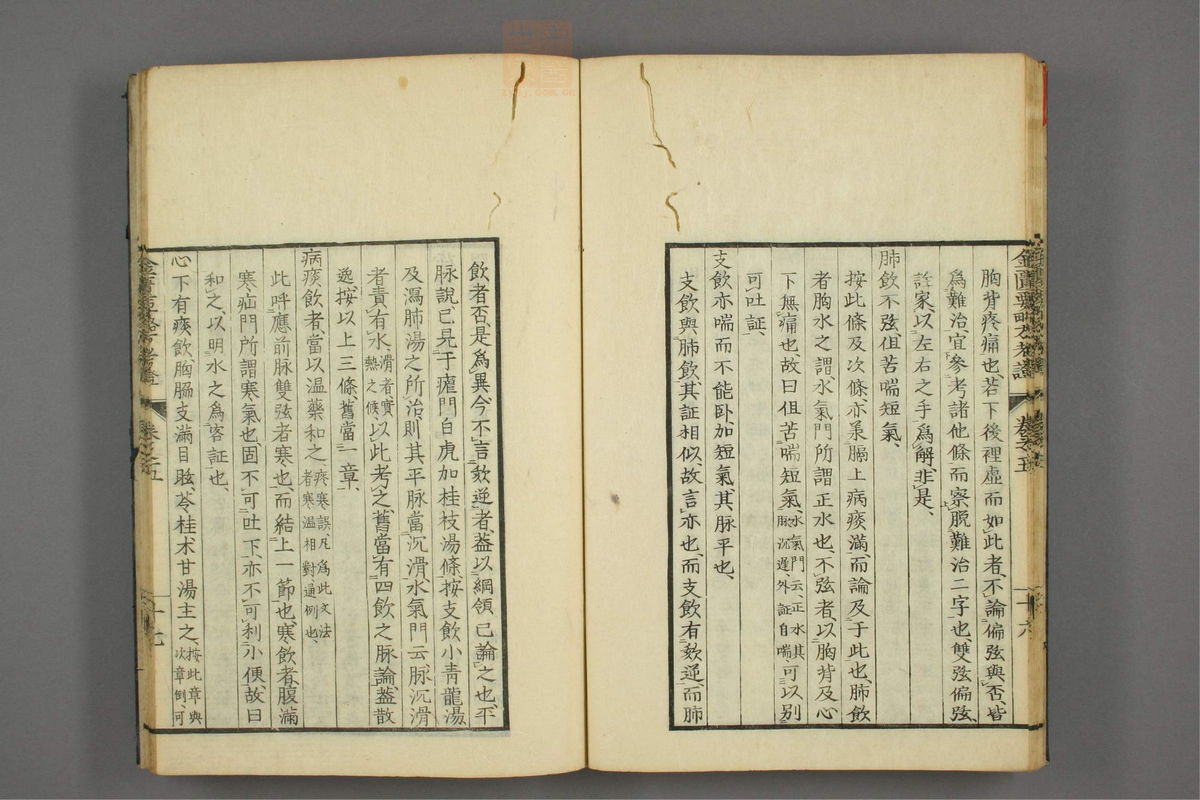 胸背疼痛也、若下後裡虛而如此者、不論偏弦與否、皆
爲難治、宜參考諸他條而察脫難治二字也、雙弦偏弦、
註家以左右之手爲解、非是、
肺飲不弦、但苦喘短氣、
按此條及次條亦承膈上病痰滿而論及于此也、肺飲
者胸水之謂、水氣門所謂正水也、不弦者、以胸背及心
下無痛也、故曰但苦喘短氣、水氣門云、正水其脉沉遲、外証自喘、可以別
可吐証、
支飲亦喘而不能臥、加短氣、其脉平也、
支飲與肺飲、其証相似、故言亦也、而支飲有欬逆、而肺
飲者否、是爲異、今不言欬逆者、蓋以綱領已論之也、平
脉說已見于瘧門白虎加桂枝湯條、按支飲小青龍湯
及瀉肺湯之所治、則其平脉當沉滑、水氣門云、脉沉滑
者責有水、滑者實熱之候、以此考之、舊當有四飲之脉論、蓋散
逸、按以上三條舊當一章、
病痰飲者、當以溫藥和之、疼寒誤、凡爲此文法者、寒溫相對、通例也、
此呼應前脉雙弦者寒也、而結上一節也、寒飲者、腹滿
寒疝門所謂寒氣也、固不可吐下、亦不可利小便、故曰
和之、以明水之爲客証也、
心下有痰飲、胸脇支滿、目眩、苓桂朮甘湯主之、按此章與次章倒、可
金匱要略考證 卷之五 十六
金匱要略考證 卷之五 十七